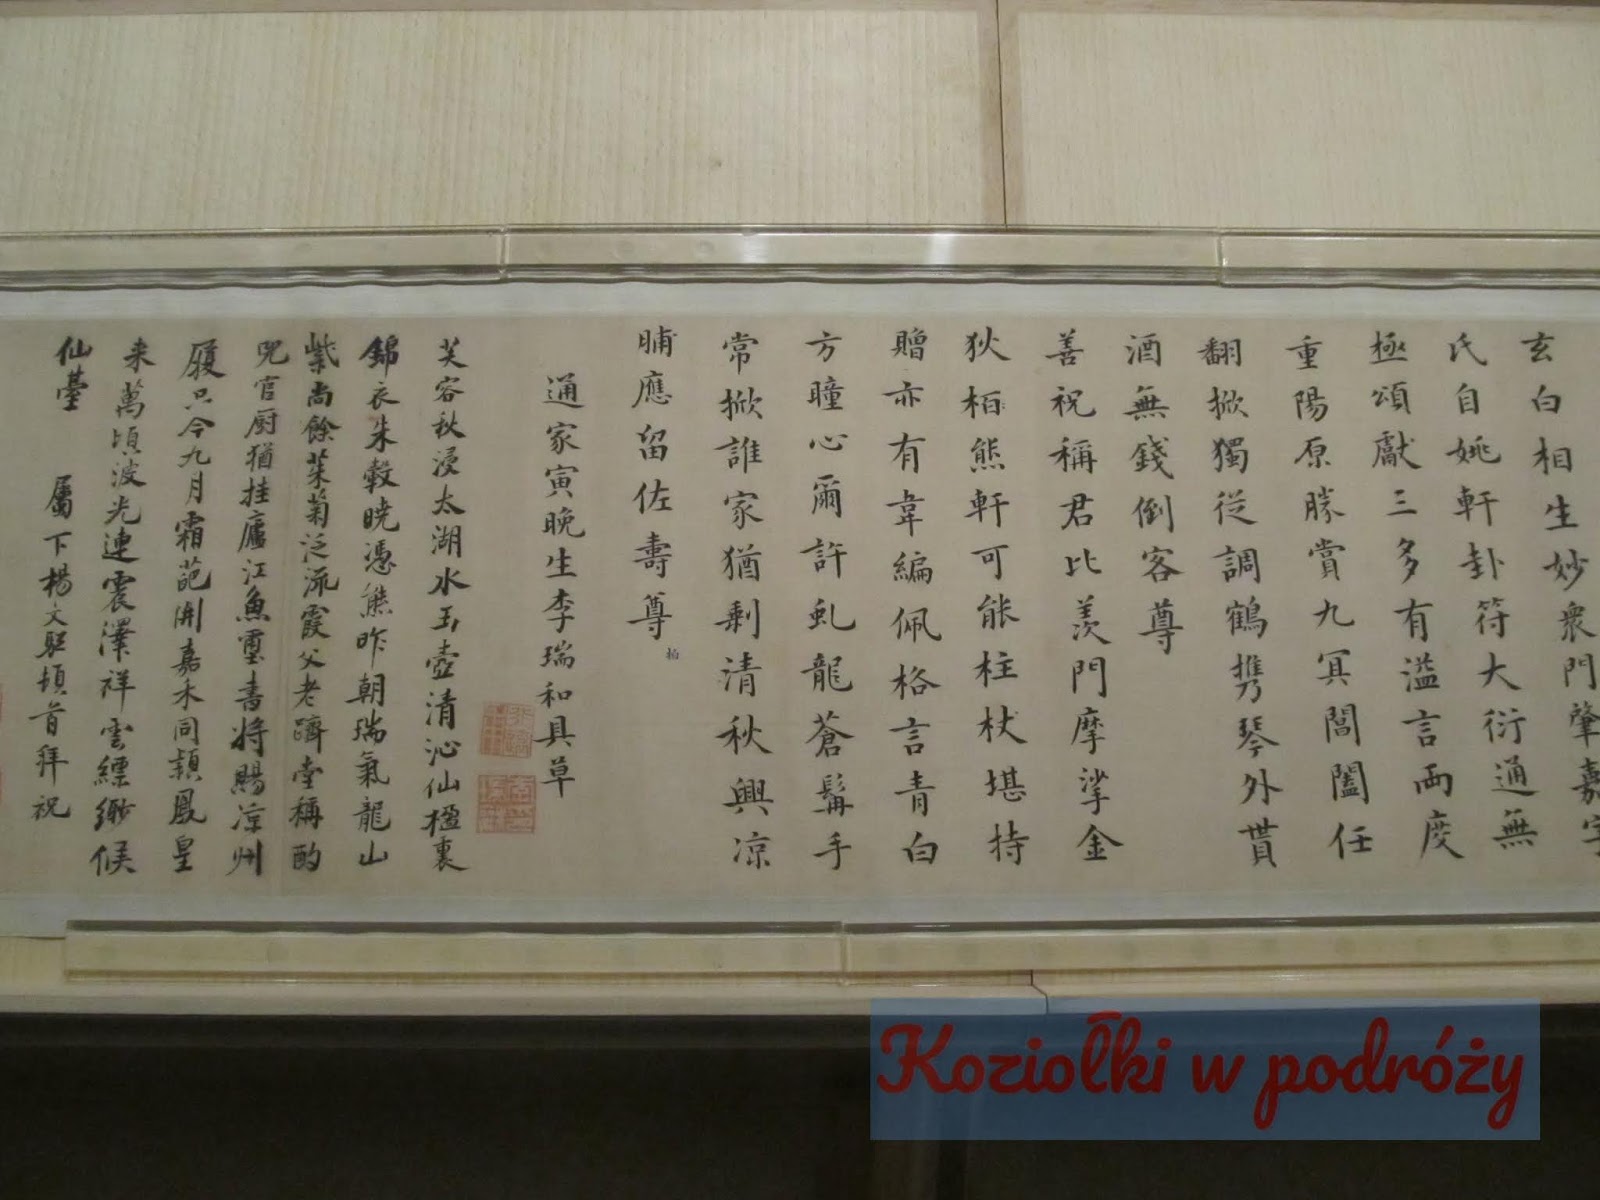 玄白相生妙衆門肇嘉字
氏自姚軒卦符大衍通無
極頌獻三多有溢言兩度
重陽原勝賞九冥閶闔任
翻掀獨從調鶴攜琴外貰
酒無錢倒客尊
善祝稱君比羨門摩挲金
狄栢熊軒可能柱杖堪持
贈亦有韋編佩格言青白
方瞳心爾許虬龍蒼髯手
常掀誰家猶剩清秋興凉
脯應留佐壽尊
栢
通家寅晚生李瑞和具草
芙容秋浸太湖水玉壺清沁仙楹裏
錦衣朱轂曉憑熊昨朝瑞氣龍山
紫尚餘茱菊泛流霞父老躋堂稱酌
兕官厨猶挂廬江魚璽書將賜凉州
履只今九月霜葩開嘉禾同穎鳳皇
来萬頃波光連震澤祥雲縹緲候
仙臺
屬下楊文驄頓首拜祝
Koziołki w podróży